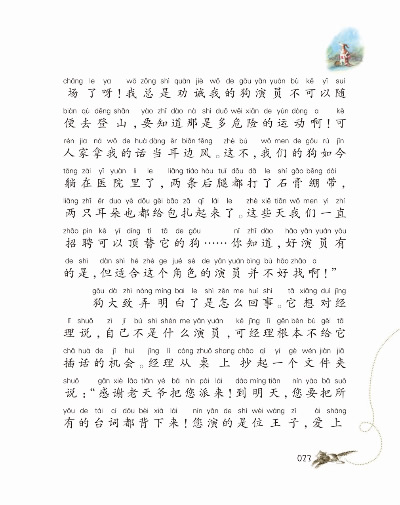 chǎng le ya wǒ zǒng shì quàn jiè wǒ de gǒu yǎn yuán bù kě yǐ suí
场了呀!我总是劝诫我的狗演员不可以随
biàn qù dēng shān yào zhī dào nà shì duō wēi xiǎn de yùn dòng a kě
便去登山,要知道那是多危险的运动啊!可
rén jia ná wǒ de huà dàng ěr biān fēng zhè bù wǒ men de gǒu rú jīn
人家拿我的话当耳边风。这不,我们的狗如今
tǎng zài yī yuàn li le liǎng tiáo hòu tuǐ dōu dǎ le shí gāo bēng dài
躺在医院里了,两条后腿都打了石膏绷带,
liǎng zhī ěr duo yě dōu gěi bāo zā qǐ lái le zhè xiē tiān wǒ men yì zhí
两只耳朵也都给包扎起来了。这些天我们一直
zhāo pìn kě yǐ dǐng tì tā de gǒu nǐ zhī dào hǎo yǎn yuán yǒu
招聘可以顶替它的狗……你知道,好演员有
de shì dàn shì hé zhè ge jué sè de yǎn yuán bìng bù hǎo zhǎo a
的是,但适合这个角色的演员并不好找啊!”
gǒu dà zhì nòng míng bai le shì zěn me huí shì tā xiǎng duì jīng
狗大致弄明白了是怎么回事。它想对经
lǐ shuō zì jǐ bú shì shén me yǎn yuán kě jīng lǐ gēn běn bù gěi tā
理说,自己不是什么演员,可经理根本不给它
chā huà de jī huì jīng lǐ cóng zhuō shang chāo qǐ yí gè wén jiàn jiā
插话的机会。经理从桌上抄起一个文件夹
shuō gǎn xiè lǎo tiān yé bǎ nín pài lái dào míng tiān nín yào bǎ suǒ
说:“感谢老天爷把您派来!到明天,您要把所
yǒu de tái cí dōu bèi xià lái nín yǎn de shì wèi wáng zǐ ài shàng
有的台词都背下来!您演的是位王子,爱上
077